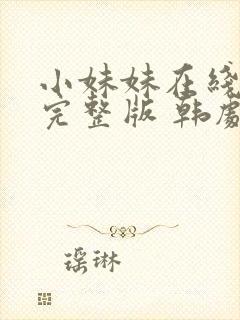 小妹妹在线
完整版 韩剧
瑶琳